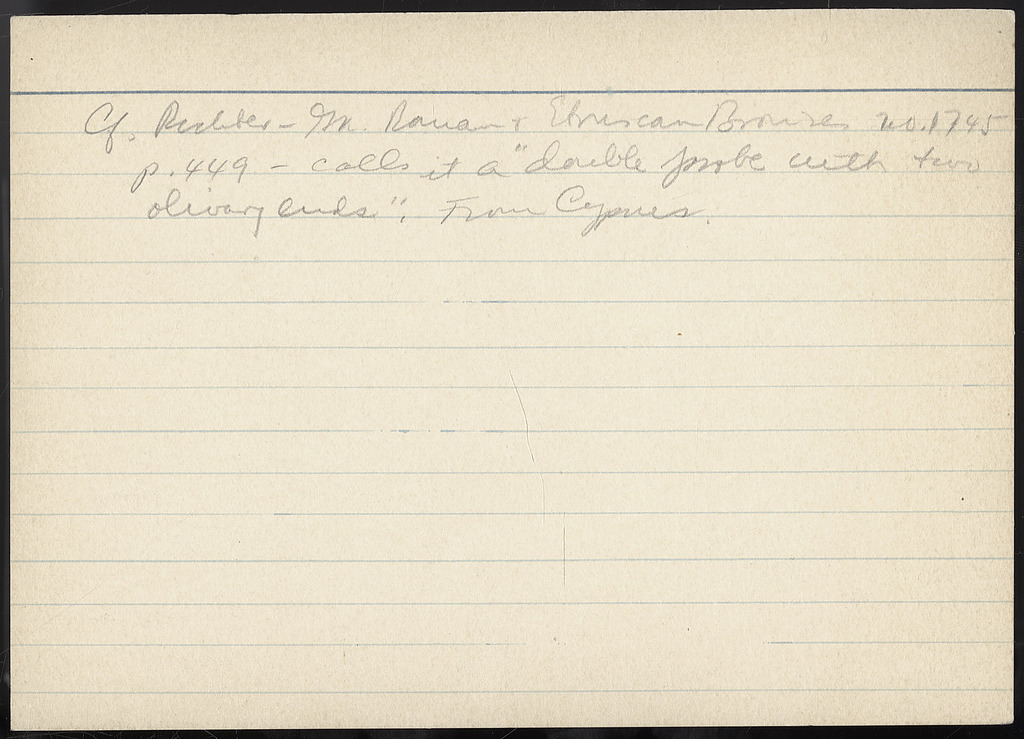 Cf. Richter - Gr. Roman & Etruscan Bronzes no. 1745
p. 449 - calls it a "double probe with two
olivary ends". From Cyprus.